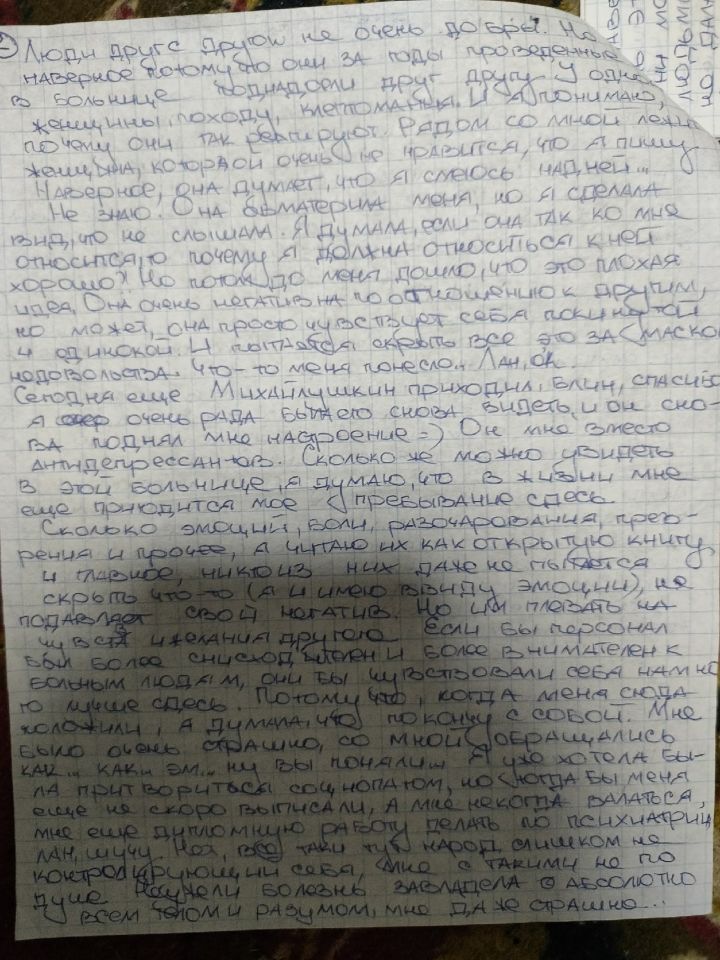 Люди друг с другом не очень добры. Но
наверное потому что они за годы проведенные
в больнице поднадоели друг другу. У одной
женщины, походу, клептомания. И я понимаю,
почему они так реагируют. Рядом со мной лежит
женщина, которой очень не нравится, что я пишу
Наверное, она думает, что я смеюсь над ней...
Не знаю. Она обматерила меня, но я сделала
вид, что не слышала. Я думала, если она так ко мне
относится, то почему я должна относиться к ней
хорошо? Но потом до меня дошло, что это плохая
идея. Она очень негативна по отношению к другим,
но может, она просто чувствует себя покинутой
и одинокой. И пытается скрыть все это за маской
недовольства. Что-то меня понесло.. Лан, ок.
Сегодня еще Михайлушкин приходил. Блин, спасибо
я очень рада была его снова видеть, и он сно-
ва поднял мне настроение =) Он мне вместо
антидепрессантов. Сколько же можно увидеть
в этой больнице, я думаю, что в жизни мне
еще пригодится мое пребывание здесь
Сколько эмоций, боли, разочарования, през-
рения и прочее, я читаю их как открытую книгу
и главное, никто из них даже не пытается
скрыть что-то (я и имею ввиду эмоции), не
подавляет свой негатив. Но им плевать на
чувства и желания другого Если бы персонал
был более снисходителен и более внимателен к
больным людям, они бы чувствовали себя намно
го лучше здесь. Потому что, когда меня сюда
положили, я думала, что покончу с собой. Мне
было очень страшно, со мной обращались
как... как.. эм... ну вы поняли... Я уже хотела бы-
ла притвориться социопатом, но тогда бы меня
еще не скоро выписали, а мне некогда валяться,
мне еще дипломную работу делать по психиатрии
лан, шучу. все таки тут народ слишком не
контролирующий себя, мне с такими не по
душе Неужели болезнь завладела абсолютно
всем телом и разумом, мне даже страшно...